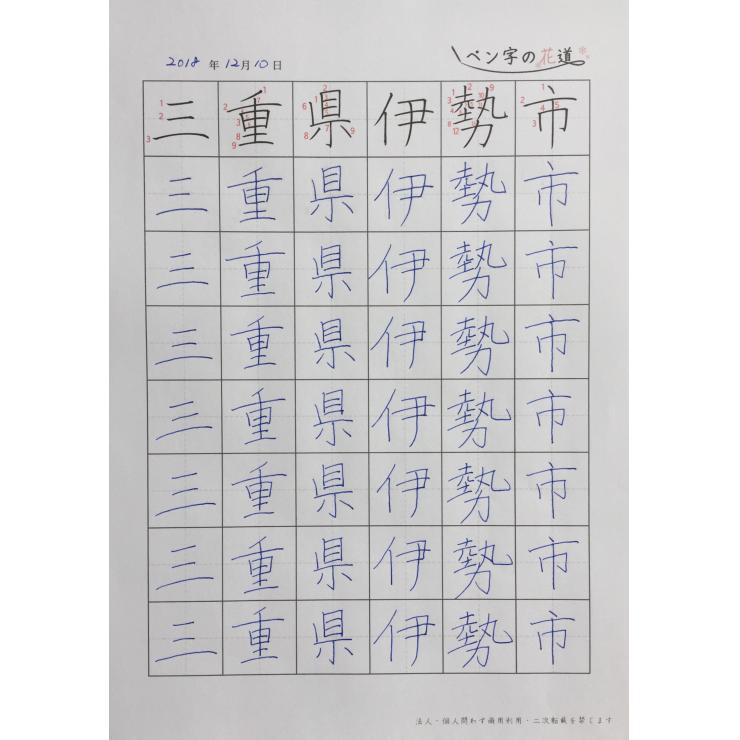 2018 年 12月 10日
ペン字の花道
三重県伊勢市
三重県伊勢市
三重県伊勢市
三重県伊勢市
三重県伊勢市
三重県伊勢市
三重県伊勢市
三重県伊勢市
法人・個人問わず商用利用・二次転載を禁じます